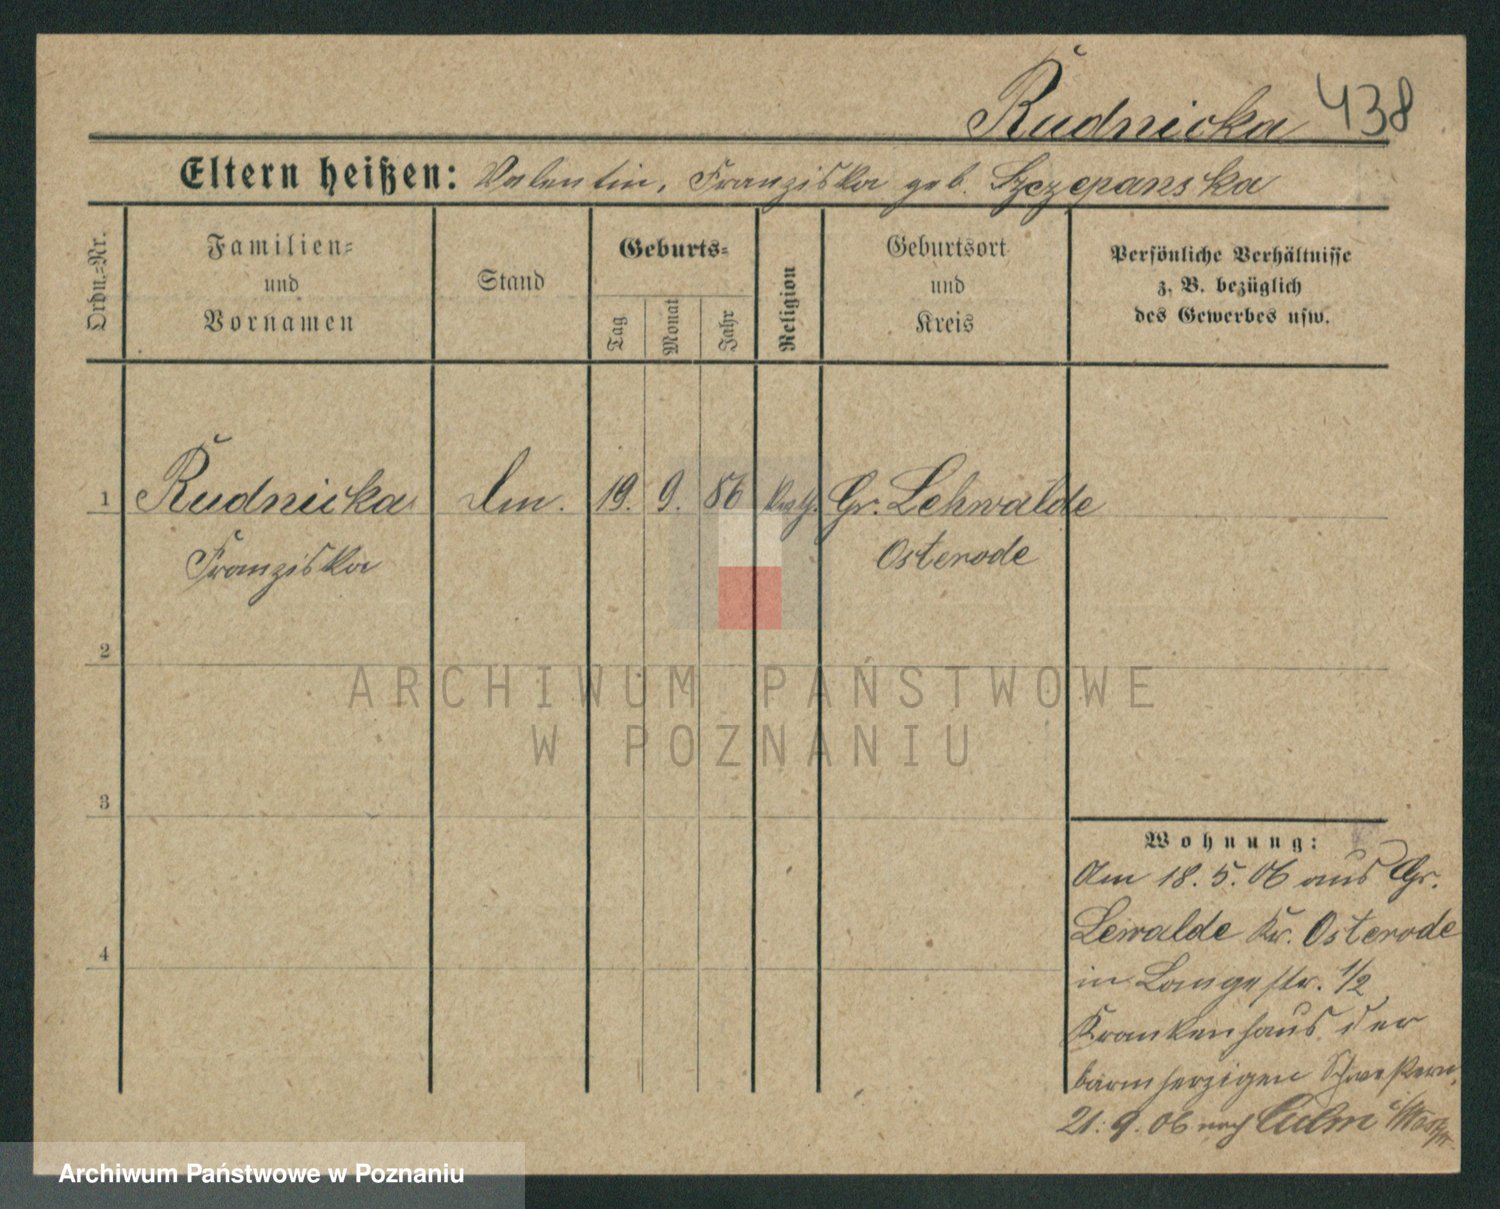 Rudnicka 438
Eltern heißen: Valentin, Franziska geb. Szczepanska
Ordn.=Nr.
Familien=
und
Vornamen
Stand
Geburts=
Tag
Monat
Jahr
Religion
Geburtsort
und
Kreis
Persönliche Verhältnisse
z. B. bezüglich
des Gewerbes usw.
1 Rudnicka 19. 9. 86 kath. Gr. Lehwalde
Franziska Osterode
2
3
4
ARCHIWUM PAŃSTWOWE
W POZNANIU
Wohnung:
Am 18. 5. 06 aus Gr.
Lewalde Kr. Osterode
in Langestr. 1/2
Krankenhaus der
barmherzigen Schwestern,
21. 9. 06 nach Culm i/Westpr.
Archiwum Państwowe w Poznaniu